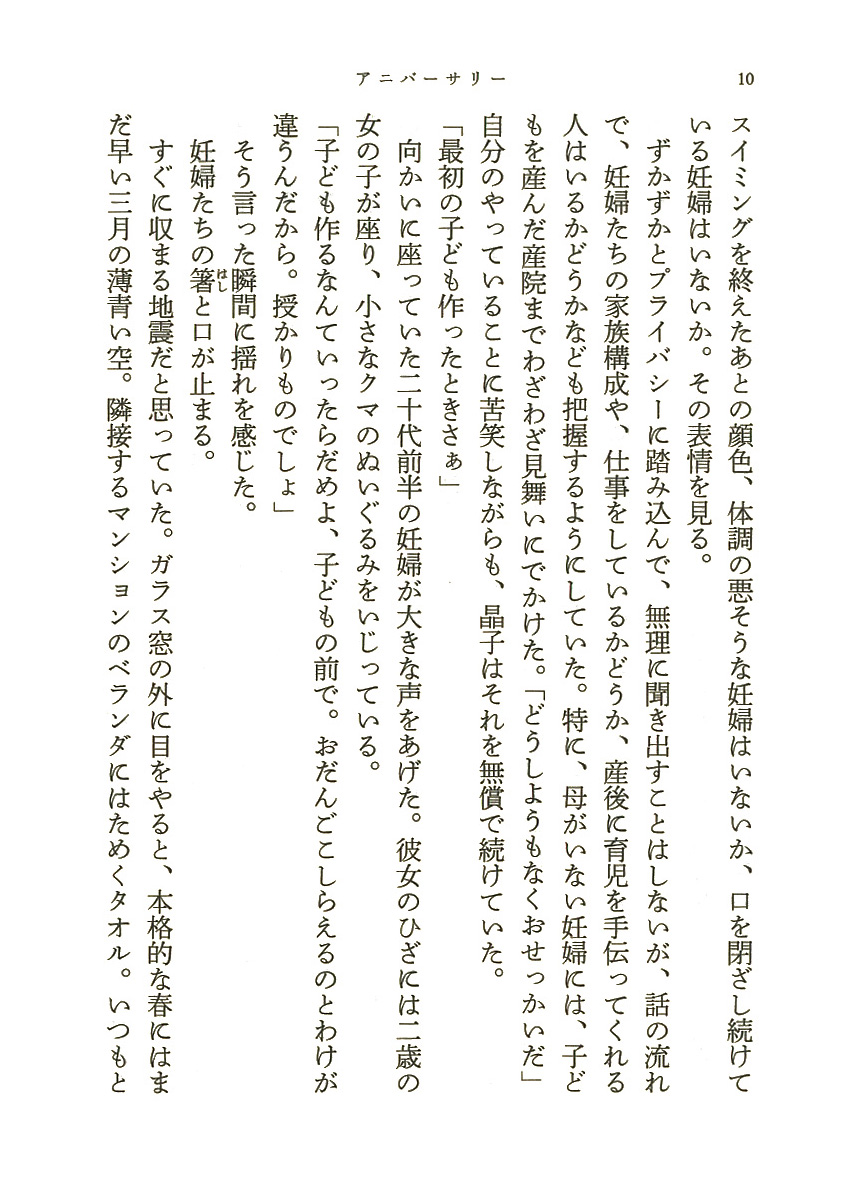 アニバーサリー
10
スイミングを終えたあとの顔色、体調の悪そうな妊婦はいないか、口を閉ざし続けて
いる妊婦はいないか。その表情を見る。
ずかずかとプライバシーに踏み込んで、無理に聞き出すことはしないが、話の流れ
で、妊婦たちの家族構成や、仕事をしているかどうか、産後に育児を手伝ってくれる
人はいるかどうかなども把握するようにしていた。特に、母がいない妊婦には、子ど
もを産んだ産院までわざわざ見舞いにでかけた。「どうしようもなくおせっかいだ」
自分のやっていることに苦笑しながらも、晶子はそれを無償で続けていた。
「最初の子ども作ったときさぁ」
向かいに座っていた二十代前半の妊婦が大きな声をあげた。彼女のひざには二歳の
女の子が座り、小さなクマのぬいぐるみをいじっている。
「子ども作るなんていったらだめよ、子どもの前で。おだんごこしらえるのとわけが
違うんだから。授かりものでしょ」
そう言った瞬間に揺れを感じた。
妊婦たちの箸はしと口が止まる。
すぐに収まる地震だと思っていた。ガラス窓の外に目をやると、本格的な春にはま
だ早い三月の薄青い空。隣接するマンションのベランダにはためくタオル。いつもと